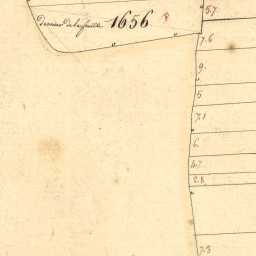 57
derniere de la feuille 1656
7.6
9.
5
7.1
6.
4.7
2.8
7.8